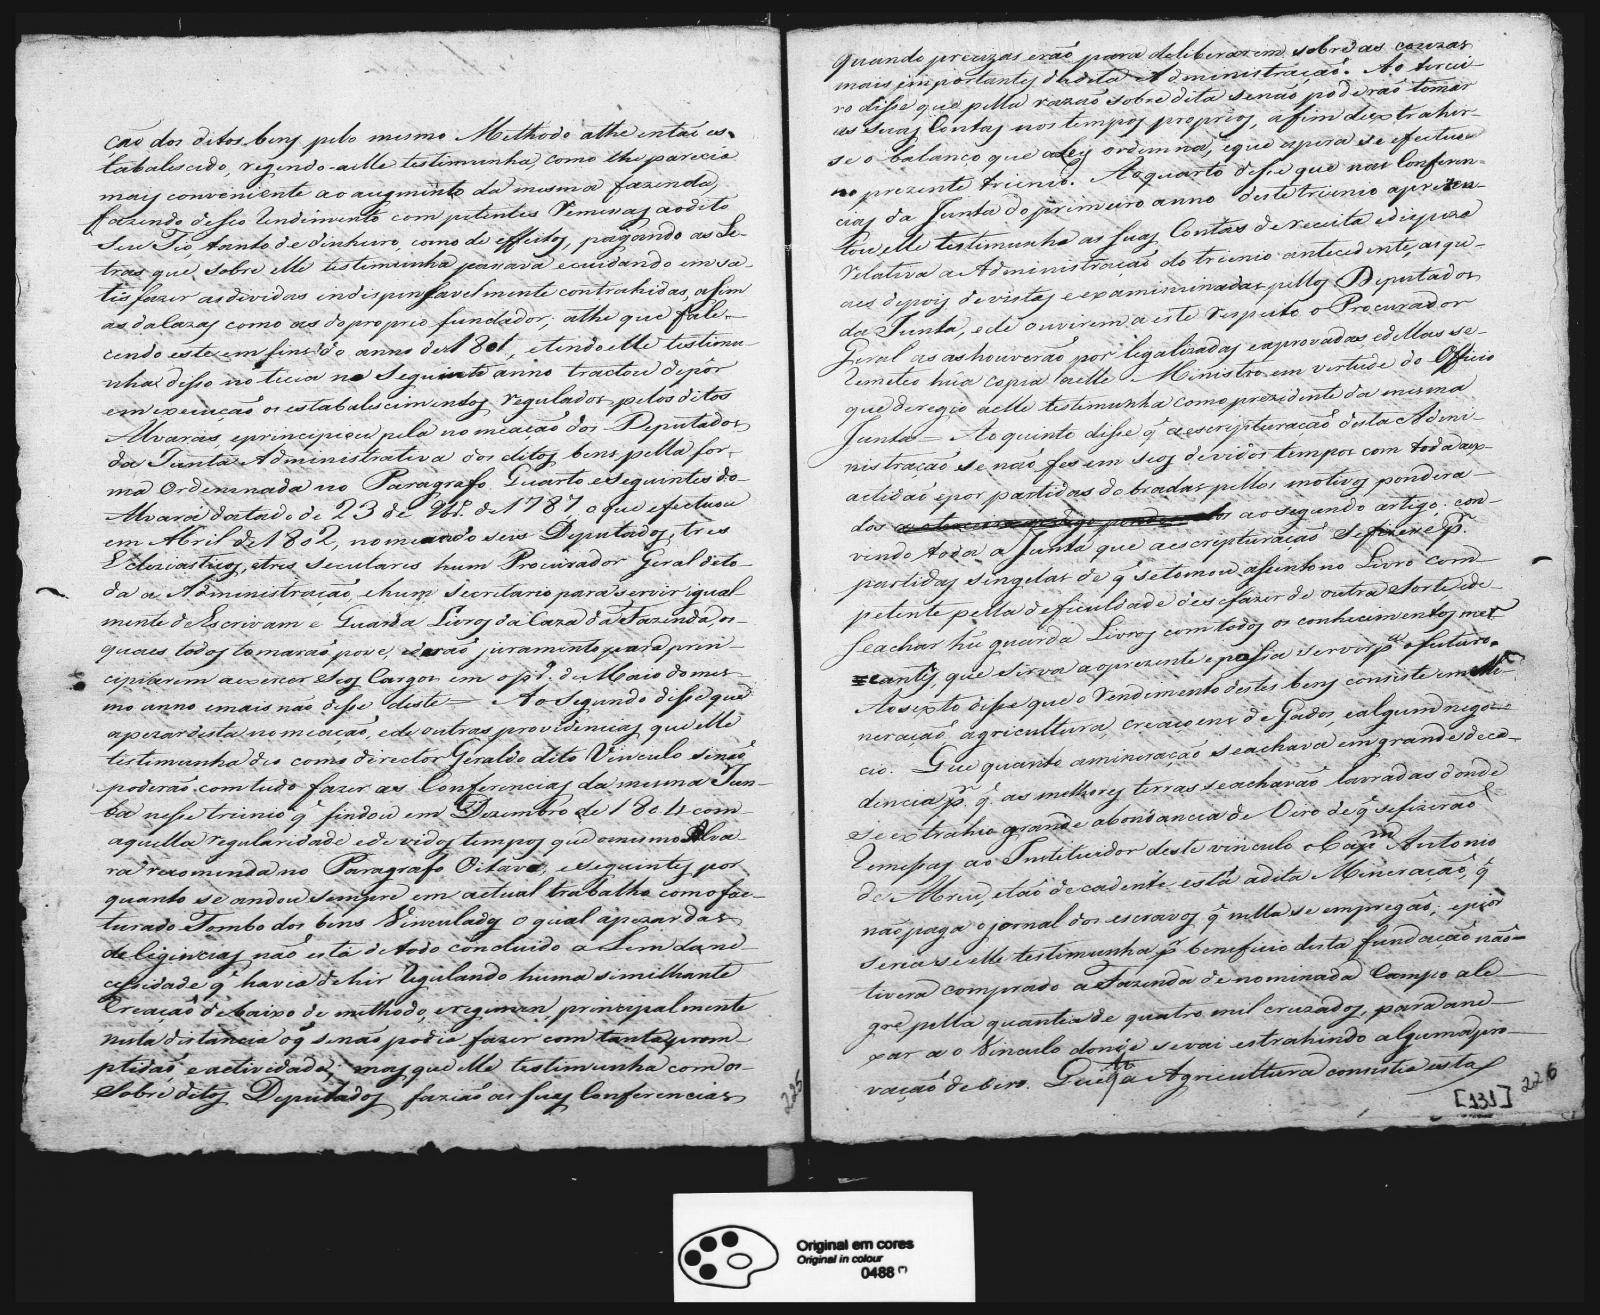 ção dos ditos bens pelo mesmo Methodo athe entaõ es-
tabalescido, regendo-aelle testimunha, como lhe parecia
mais conveniente ao augmento da mesma fazenda,
fazendo desseo Rendimento competentes Remessas ao dito
Seu Tio, tanto de dinheiro, como de effeitos, pagando as Le-
tras que sobre elle testimunha passava ecuidando em sa-
tisfazer asdividas indispensavelmente contrahidas, assim
as daCaza, como as do proprio fundador; athe que fale-
cendo este em fins do anno de 1801, etendo elle testimu-
nha desso noticia no Seguinte anno tractou depôr
em execução os estabalescimentos regulados pelos ditos
Alvarás, eprincipiou pela nomeação dos Deputados
da Junta Administrativa dos ditos bens pella for-
ma Ordennada no Paragrafo Quarto eseguintes do
Alvará datado de 23 de de 1787, oque efectuou
em Abril de 1802, nomeando seis Deputados, tres
Eclesiasticos, etres seculares hum Procurador Geral deto-
da a Administração, ehum Secretario para servir igual
mente deEscrivam e Guarda Livros da Caza da Fazenda, os
quaes todos tomaraõ posse, ederaõ juramento para prin-
cipiarem aexercer Seos Cargos em o pr.º de Maio domes-
mo anno emais não disse deste — Ao Segundo disse que
apezardesta nomeação, ede outras providencias que elle
testimunha deo como director Geral do dito Vinculo senaõ
poderaõ comtudo fazer as Conferencias da mesma Jun-
ta nesse triennio q̃ findou em Dezembro de 1804 com
aquella regularidade edevidos tempos que omesmo Alva-
rá recomenda no Paragrafo Oitavo, eseguintes por
quanto se andou sempre em actual trabalho como fac-
turado Tombo dos bens Vinculados oqual apezar das
deligincias não está detodo concluido alem dane-
cessidade q̃ havia dehir Regulando huma similhante
Creação debaixo de methodo, eregimen, principalmente
nesta distancia oq̃ senão podia fazer com tanta prom-
ptidaõ, eactividade; mas que elle testimunha com os
Sobre ditos Deputados faziaõ as suas Conferencias
225
quando precizas eraõ para deliberarem sobre as couzas
mais importantes dadita Administração. Ao tercei-
ro disse que pella razaõ sobredita senão poderaõ tomar
as Suas Contas nos tempos proprios, afim dextrahir-
se o balanço que aLey ordenna, eque espera se efectue
no prezente trienio. Aoquarto disse que nas Conferen-
cias da Junta do primeiro anno deste trienio aprezen-
tou elle testimunha as suas Contas de receita edespeza
relativa a Administração do trienio antecedente, as qu-
aes depois devistas eexamininadas pellos Deputados
da Junta, ede ouvirem a este respeito o Procurador
Geral as ashouveraõ por legalizadas eaprovadas edellas se-
remeteo húa copia aelle Ministro em virtude do Officio
que deregio aelle testimunha como prezidente da mesma
Junta — Ao quinto disse q̃ aescripturação desta Admi-
nistração se não fes em seos devidos tempos com toda aex-
actidaõ epor partidas dobradas pellos motivos pondera-
dos ao segundo artigo, con-
vindo toda a Junta que aescripturação Sefizesse p.r
partidas singelas de q̃ setomou assento no Livro com-
petente pella deficuldade desefazer de outra sorte ede
Seachar hú guarda Livros comtodos os conhecimentos mer-
cantis, que sirva aoprezente epossa servir p.ª ofuturo.
Aosexto disse que o Rendimento destes bens consiste emMi-
neração, agricultura, creaçoens de Gados, ealgum nego-
cio. Que quanto amineração seachava em grande deca-
dencia p.r q̃ as melhores terras seachavaõ lavradas donde
se extrahio grande abondancia de Oiro de q̃ sefizeraõ
Remessas ao Instituidor deste vinculo o Cap.m Antonio
de Abreu, etaõ decadente está adita Mineração, q̃
não paga ojornal dos escravos q̃ nella se empregaõ; epeior
seria seelle testimunha p.r beneficio desta fundação não-
tivera comprado aFazenda denominada Campo ale-
gre pella quantia de quatro mil cruzados, para ane-
xar a o Vinculo donde sevai estrahindo algumapro-
vação deOiro. Que a Agricultura consistia esta
[131]
226
Original em cores
Original in colour
0488 (*)